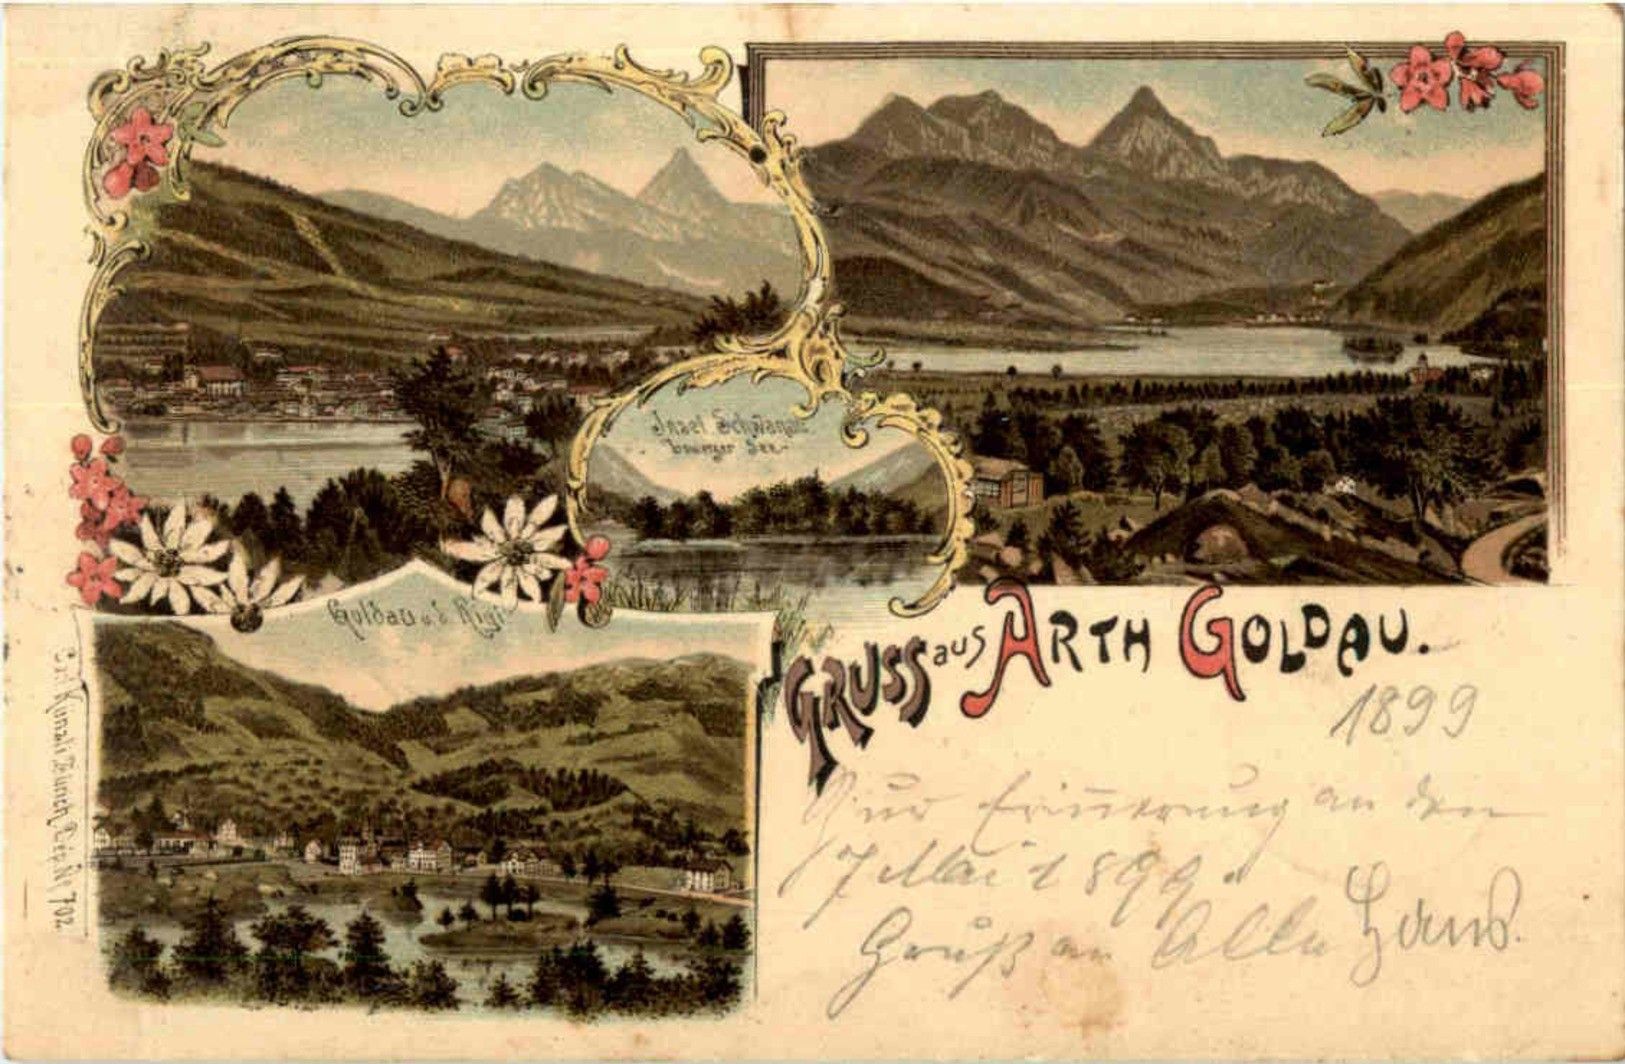 Insel Schwanau
Lowerzer See.
Goldau u. d. Rigi
GRUSS aus ARTH GOLDAU.
1899
Zur Erinnerung an den
7 Mai 1899.
Gruß an Alle Hans.
C. Künzli Zürich, Dép. № 702